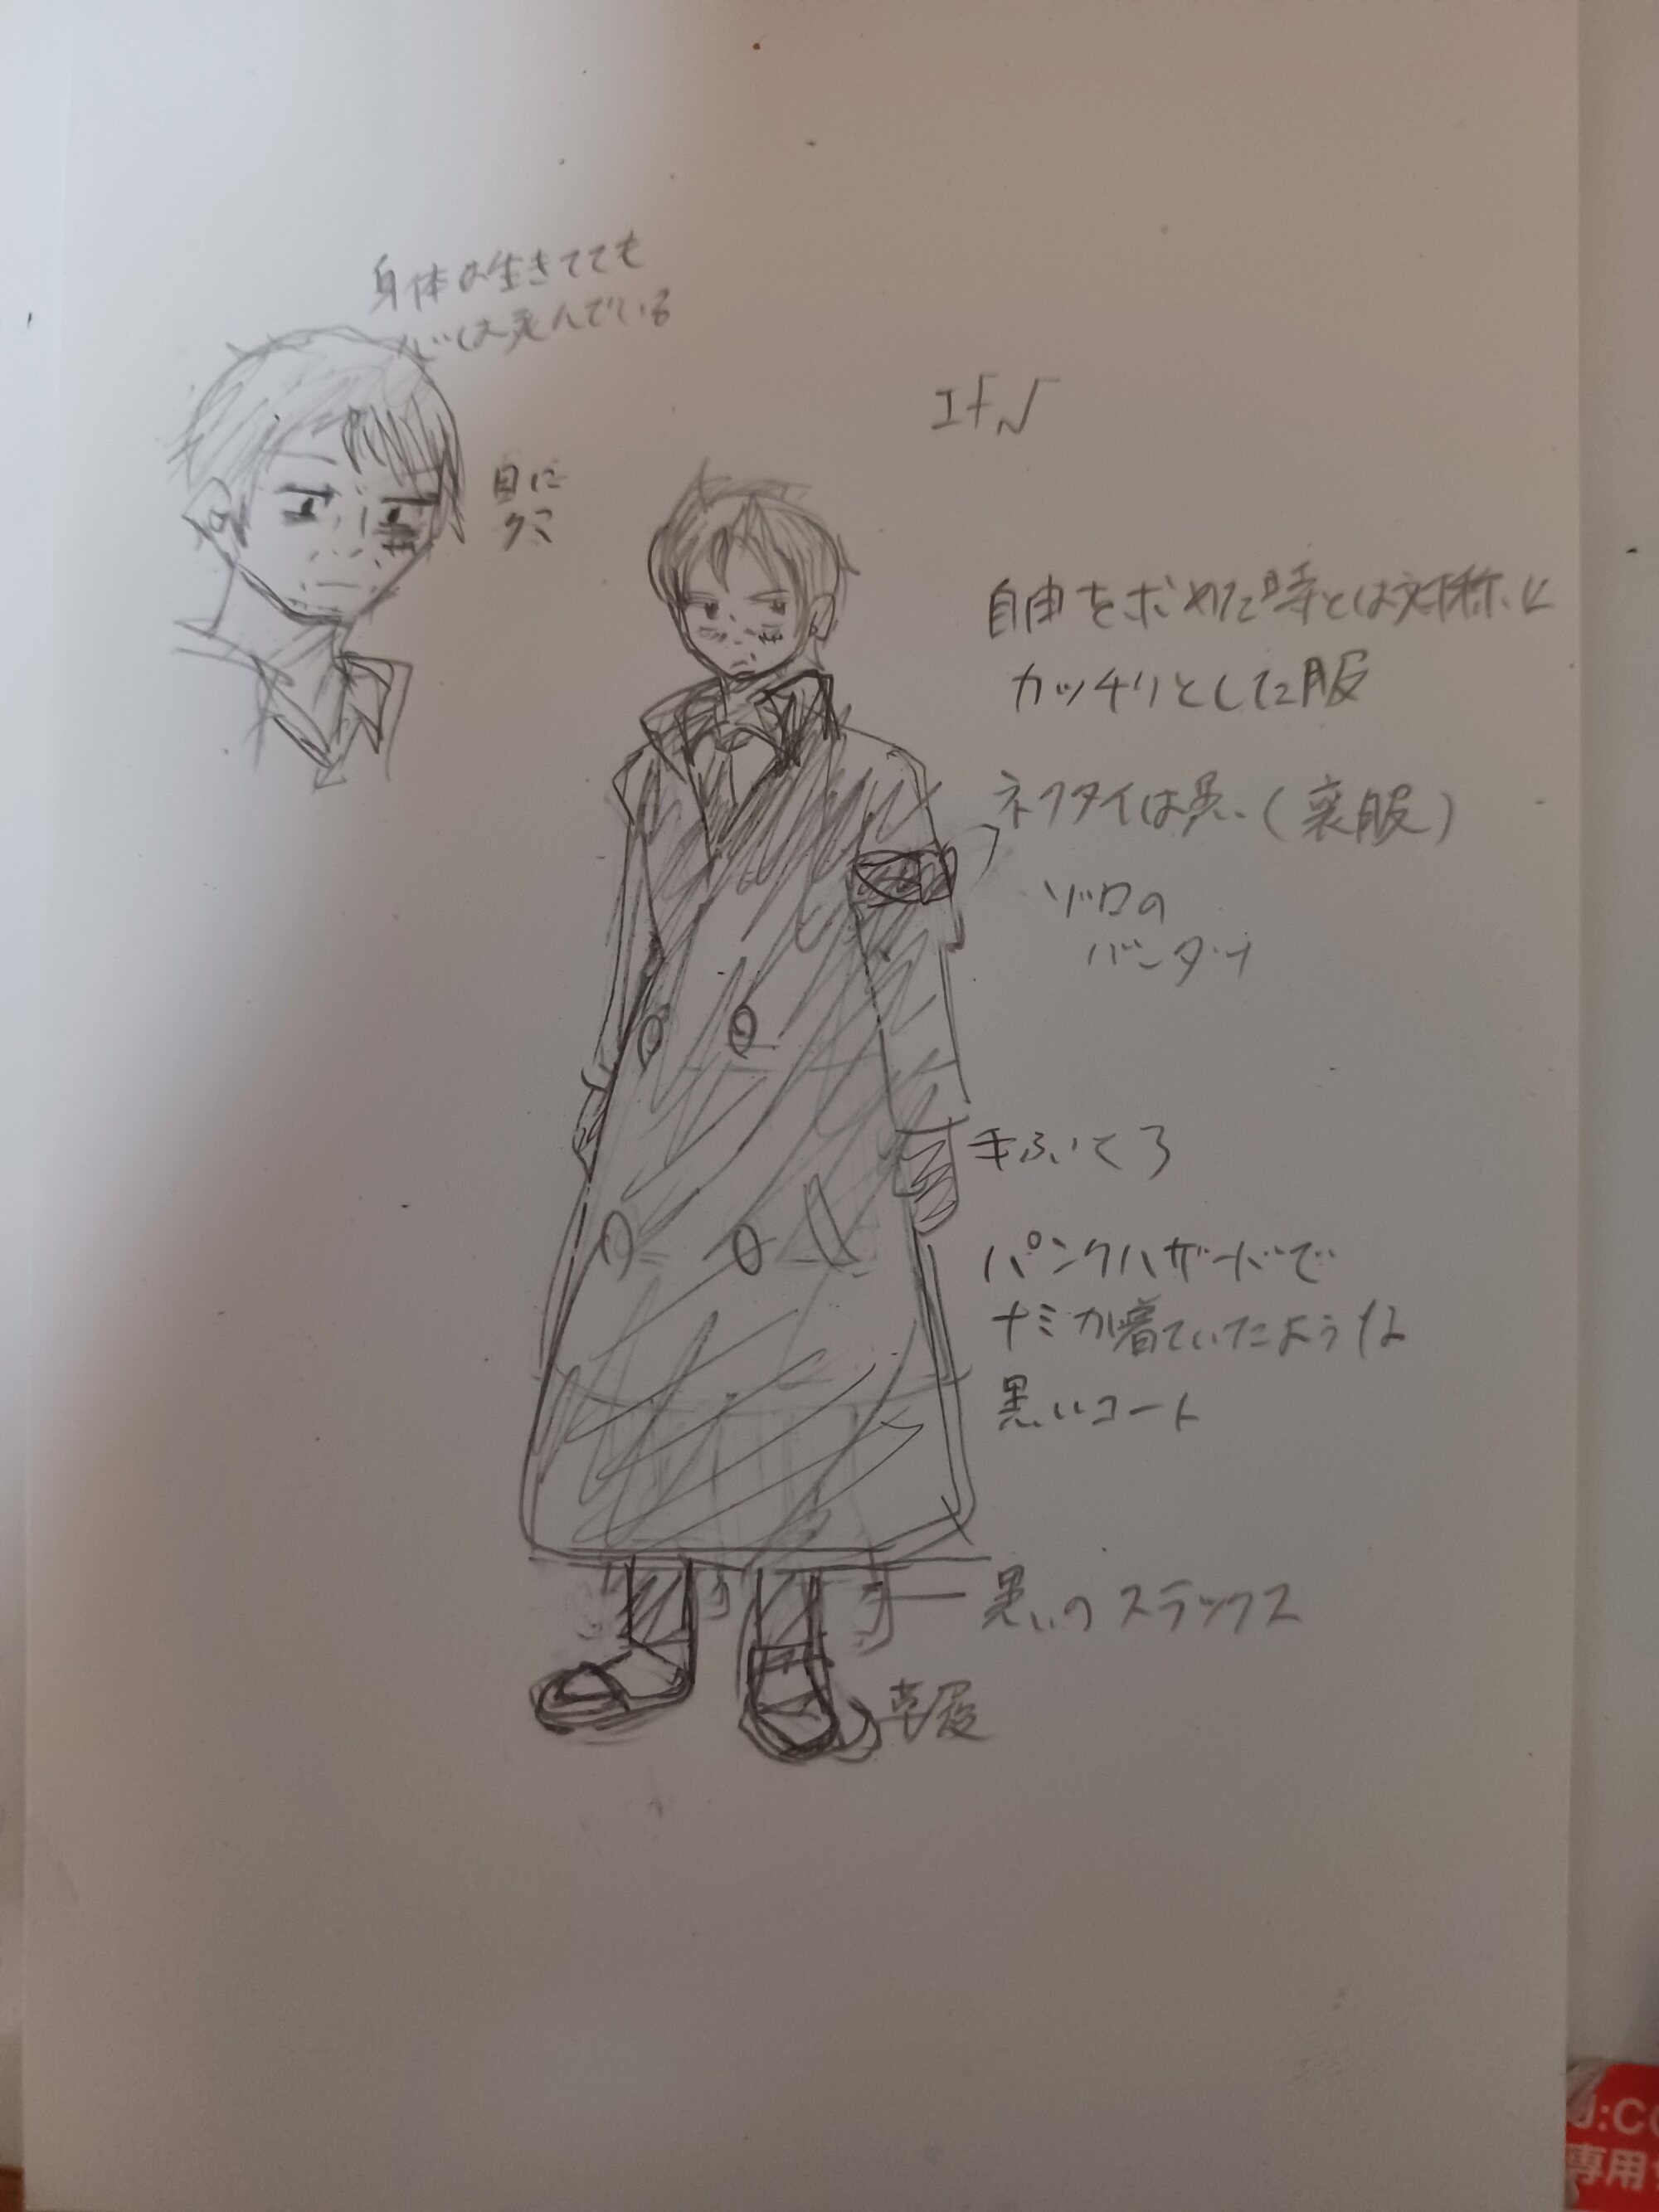 身体は生きてても
心は死んでいる
目に
クマ
自由を求めた時とは対称に
カッチリとした服
ネクタイは黒(喪服)
ゾロの
バンダナ
手ぶくろ
パンクハザードで
ナミが着ていたような
黒いコート
黒いのスラックス
草履
専用